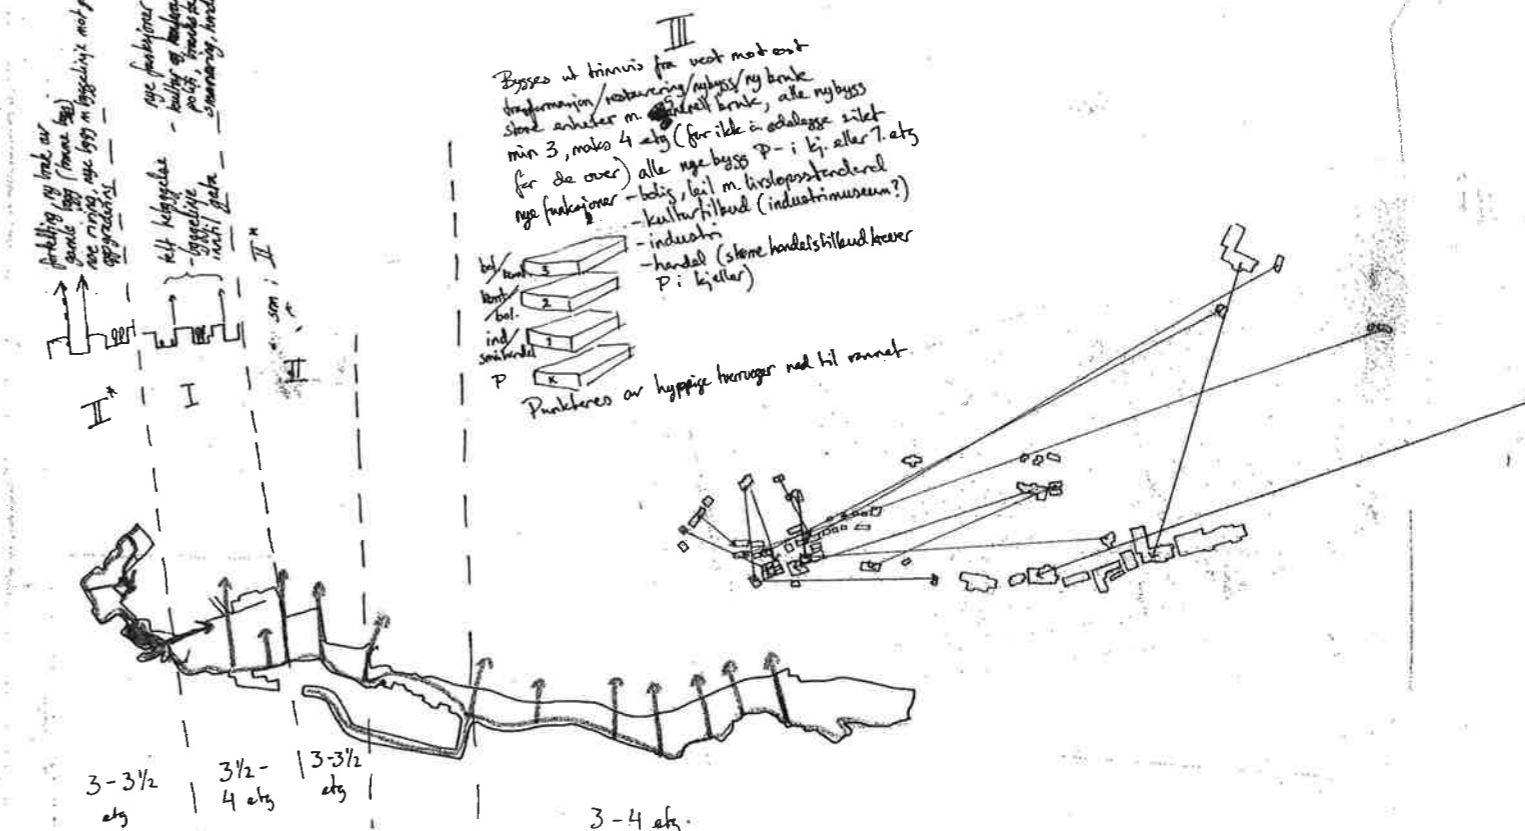 fortetting, ny bruk av
gamle bygg (tomme bygg)
noe riving, nye bygg m byggelinje mot
oppgradering
tett bebyggelse
- byggelinje
inntil gata
nye funksjoner
- kultur og
politi,
som i II*
II*
I
II
III
Bygges ut trinnvis fra vest mot øst
transformasjon/restaurering/nybygg/ny bruk
store enheter m. generell bruk, alle nybygg
min 3, maks 4 etg (for ikke å ødelegge sikt
for de over) alle nye bygg P- i kj. eller 1. etg
nye funksjoner - bolig, leil m. livsløpsstandard
- kulturtilbud (industrimuseum?)
- industri
- handel (større handelstilbud krever
P i kjeller)
bol/kont. 3
kont/bol. 2
ind/småhandel 1
P K
Punkteres av hyppige tverrveger ned til vannet
3 - 3½
etg
3½ -
4 etg
3-3½
etg
3 - 4 etg.